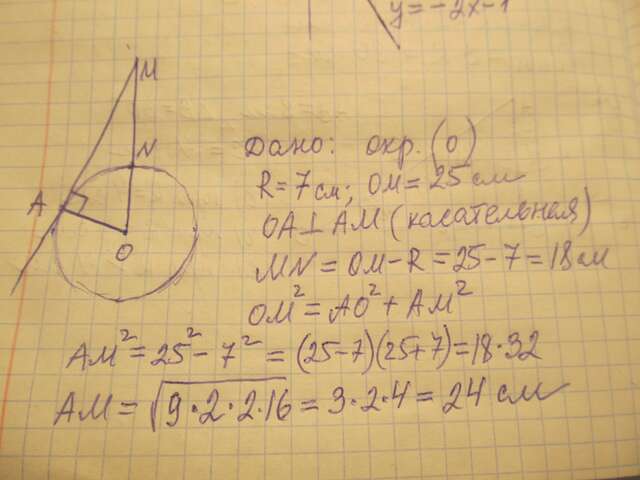 y=-2x-1
M
N
A
O
Дано: окр. (O)
R=7см; OM=25см
OA⊥AM (касательная)
MN=OM-R=25-7=18см
OM²=AO²+AM²
AM²=25²-7²=(25-7)(25+7)=18·32
AM=√9·2·2·16=3·2·4=24 см